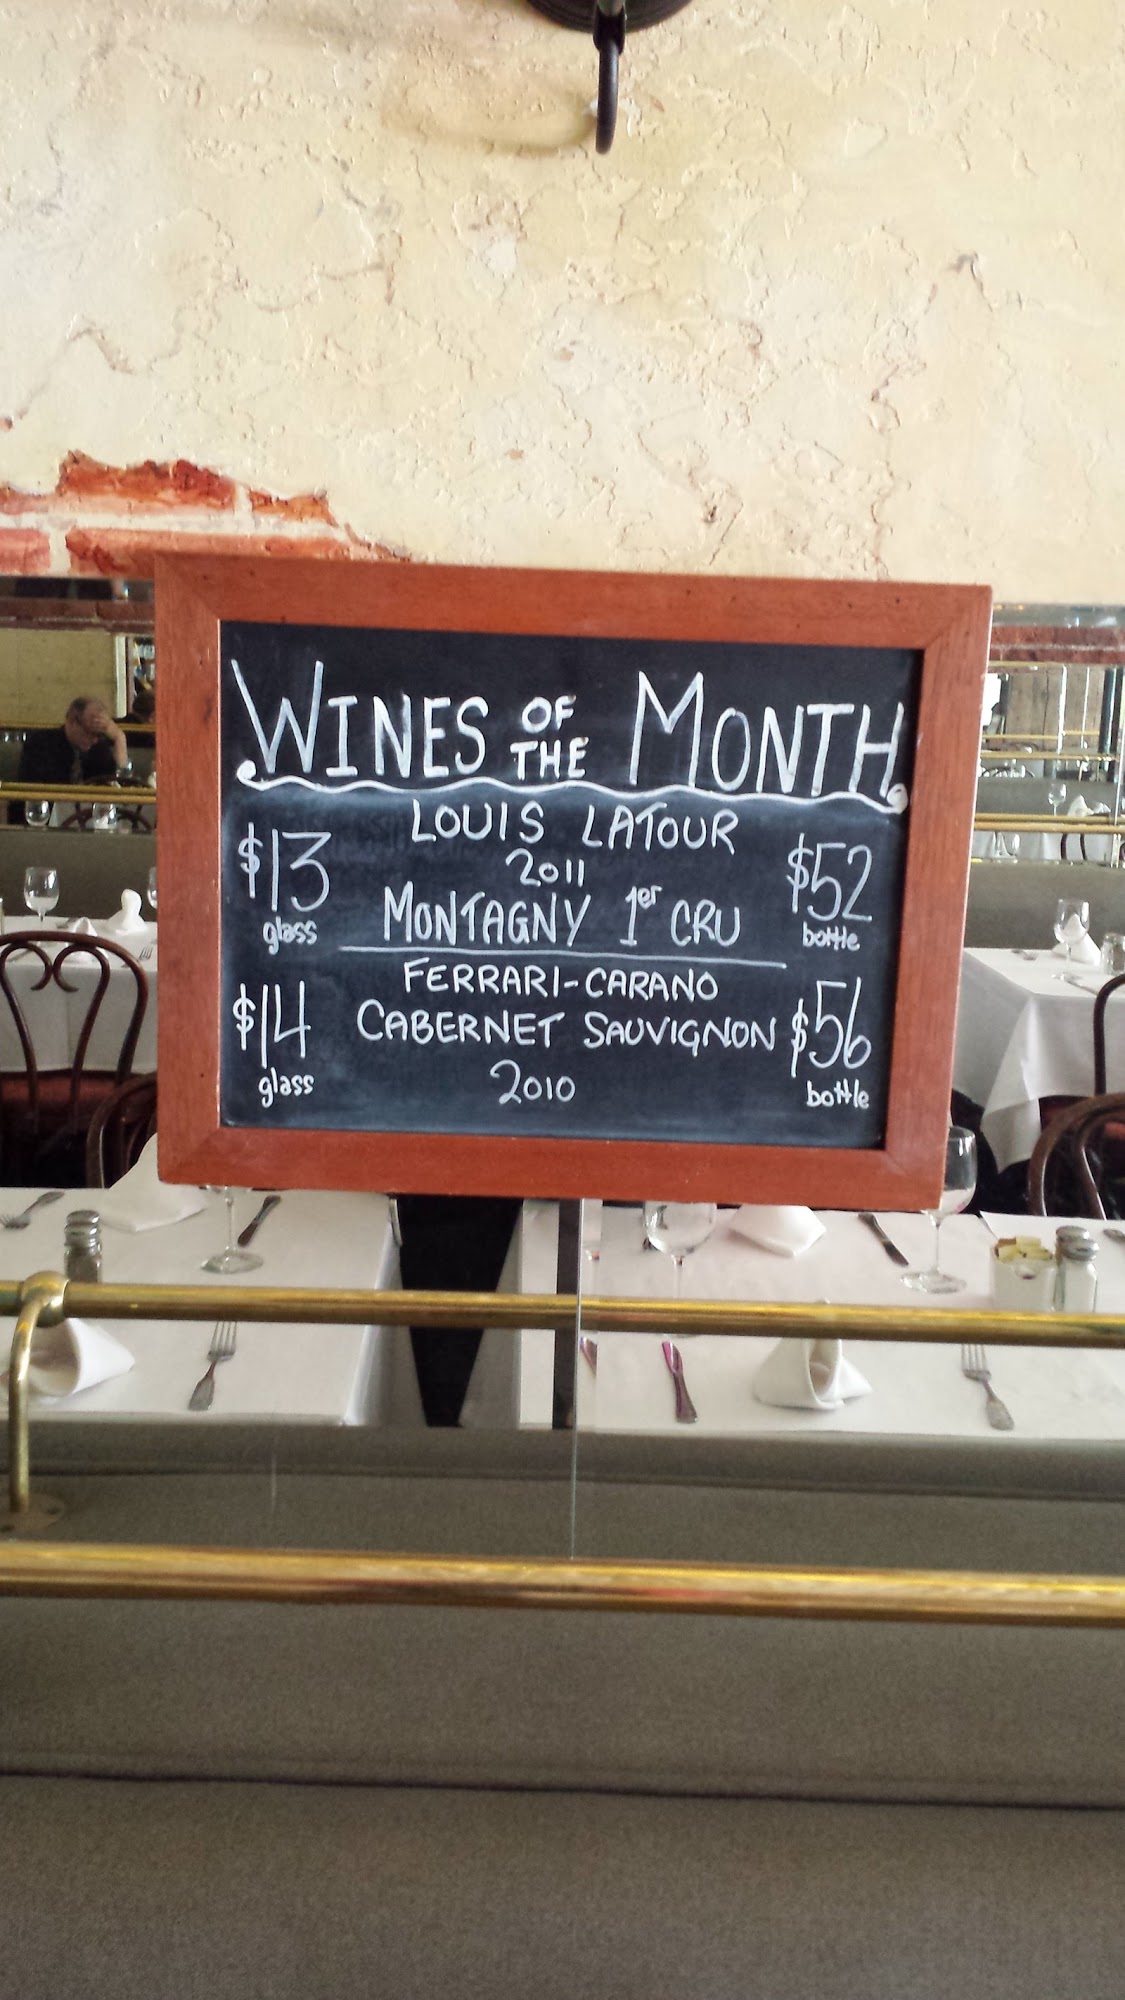 WINES OF THE MONTH
LOUIS LATOUR
2011
MONTAGNY 1er CRU
$13
glass
$52
bottle
FERRARI-CARANO
CABERNET SAUVIGNON
2010
$14
glass
$56
bottle